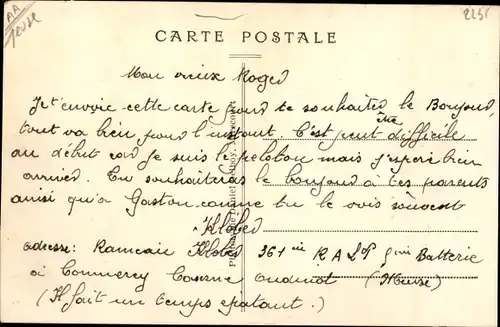 AA
Meuse
2251
CARTE POSTALE
Mon vieux Roger
Je t'envoie cette carte pour te souhaiter le Bonjour,
tout va bien pour l'instant. C'est peut être difficile
au début car je suis le peloton mais j'espère bien
arriver. Tu souhaiteras le bonjour à tes parents
ainsi qu'a Gaston, comme tu le vois souvent
Kléber
adresse: Kléber 361me R A L P Batterie
à Commercy Caserne Oudinot (Meuse)
(Il fait un temps épatant.)